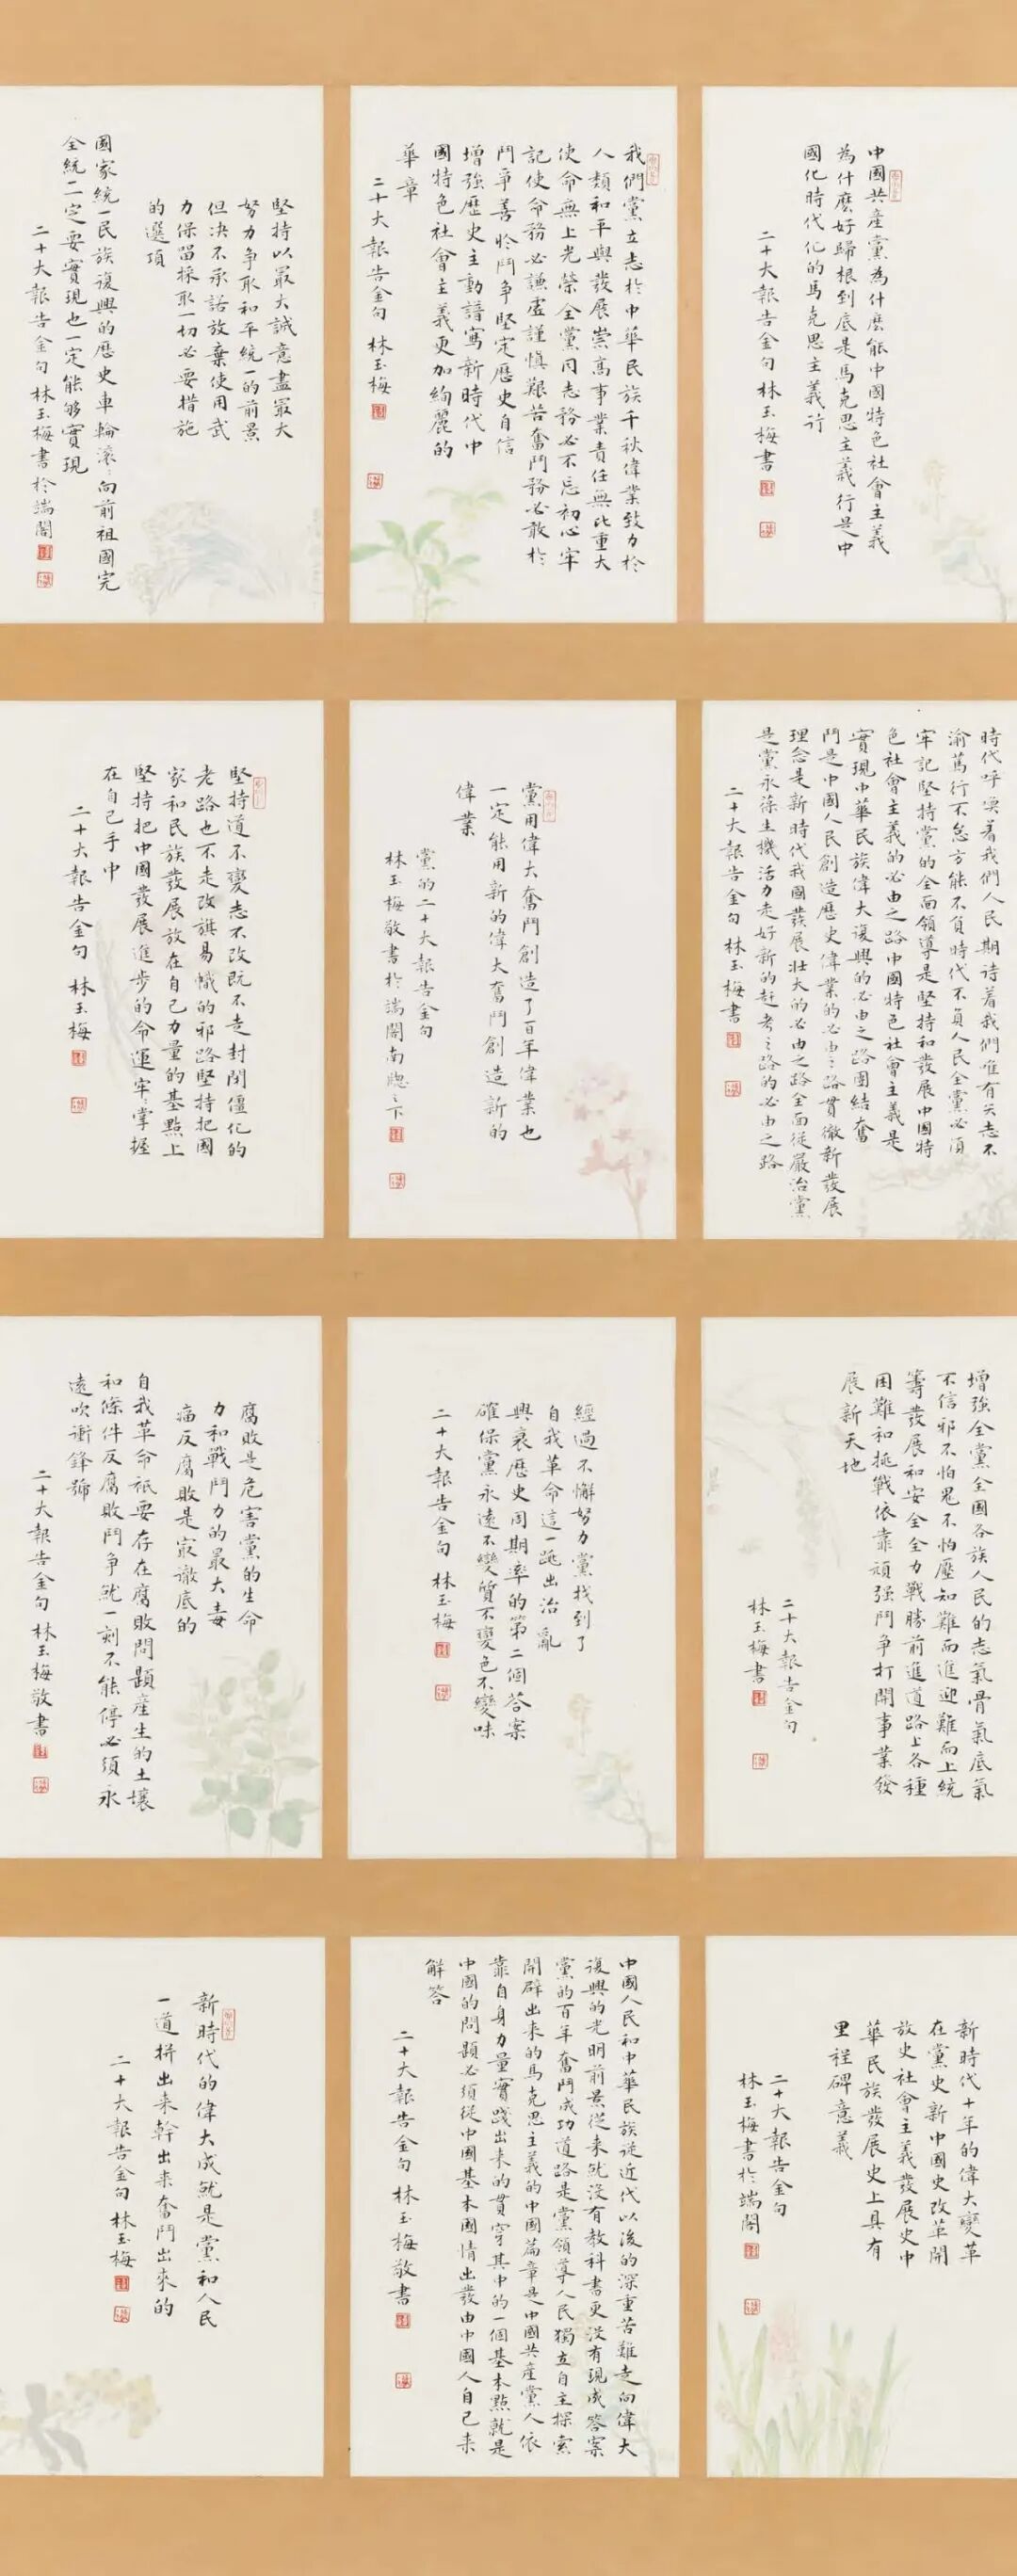 中國共產黨為什麽能中國特色社會主義
為什麽好歸根到底是馬克思主義行是中
國化時代化的馬克思主義行
二十大報告金句 林玉梅書
我們黨立志於中華民族千秋偉業致力於
人類和平與發展崇高事業責任無比重大
使命無上光榮全黨同志務必不忘初心牢
記使命務必謙虛謹慎艱苦奮鬥務必敢於
鬥爭善於鬥爭堅定歷史自信
增強歷史主動譜寫新時代中
國特色社會主義更加絢麗的
華章
二十大報告金句 林玉梅
堅持以最大誠意盡最大
努力爭取和平統一的前景
但決不承諾放棄使用武
力保留採取一切必要措施
的選項
國家統一民族復興的歷史車輪滾滾向前祖國完
全統一一定要實現也一定能够實現
二十大報告金句 林玉梅書於端閣
時代呼喚着我們人民期待着我們唯有矢志不
渝篤行不怠方能不負時代不負人民全黨必須
牢記堅持黨的全面領導是堅持和發展中國特
色社會主義的必由之路中國特色社會主義是
實現中華民族偉大復興的必由之路團結奮
鬥是中國人民創造歷史偉業的必由之路貫徹新發展
理念是新時代我國發展壯大的必由之路全面從嚴治黨
是黨永葆生機活力走好新的赶考之路的必由之路
二十大報告金句 林玉梅書
黨用偉大奮鬥創造了百年偉業也
一定能用新的偉大奮鬥創造新的
偉業
黨的二十大報告金句
林玉梅敬書於端閣南牕之下
堅持道不變志不改既不走封閉僵化的
老路也不走改旗易幟的邪路堅持把國
家和民族發展放在自己力量的基點上
堅持把中國發展進步的命運牢牢掌握
在自己手中
二十大報告金句 林玉梅
增強全黨全國各族人民的志氣骨氣底氣
不信邪不怕鬼不怕壓知難而進迎難而上統
籌發展和安全全力戰勝前進道路上各種
困難和挑戰依靠頑強鬥爭打開事業發
展新天地
二十大報告金句
林玉梅書
經過不懈努力黨找到了
自我革命這一跳出治亂
興衰歷史周期率的第二個答案
確保黨永遠不變質不變色不變味
二十大報告金句 林玉梅
腐敗是危害黨的生命
力和戰鬥力的最大毒
瘤反腐敗是最澈底的
自我革命衹要存在腐敗問題產生的土壤
和條件反腐敗鬥爭就一刻不能停必須永
遠吹衝鋒號
二十大報告金句 林玉梅敬書
新時代十年的偉大變革
在黨史新中國史改革開
放史社會主義發展史中
華民族發展史上具有
里程碑意義
二十大報告金句
林玉梅書於端閣
中國人民和中華民族從近代以後的深重苦難走向偉大
復興的光明前景從来就沒有教科書更沒有現成答案
黨的百年奮鬥成功道路是黨領導人民獨立自主探索
開辟出来的馬克思主義的中國篇章是中國共產黨人依
靠自身力量實踐出来的貫穿其中的一個基本點就是
中國的問題必須從中國基本國情出發由中國人自己来
解答
二十大報告金句 林玉梅敬書
新時代的偉大成就是黨和人民
一道拼出来幹出来奮鬥出來的
二十大報告金句 林玉梅